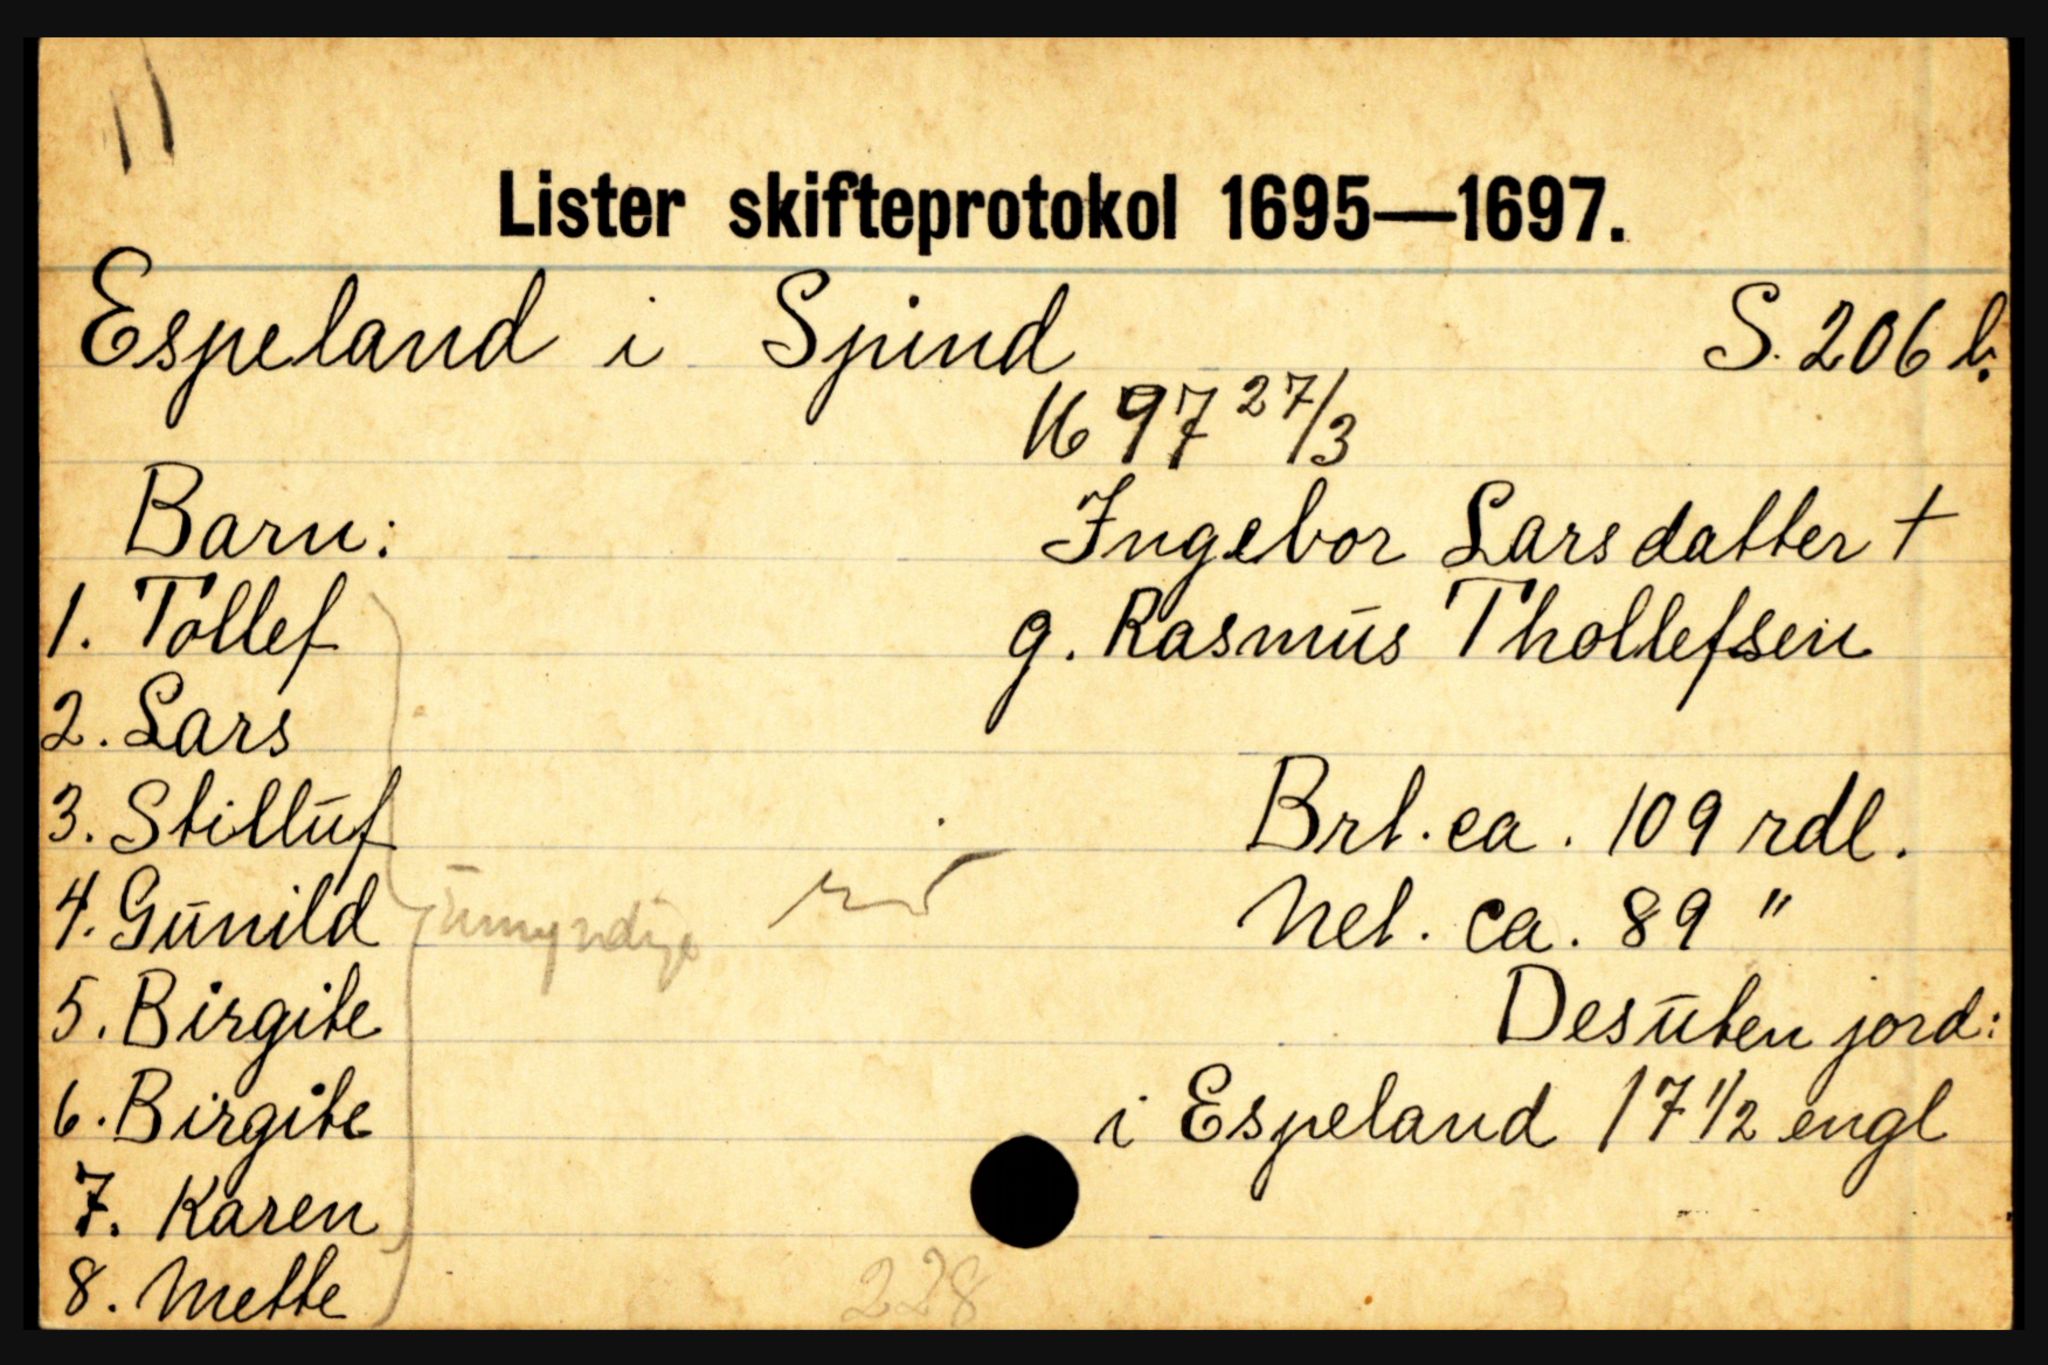 Lister skifteprotokol 1695—1697.
Espeland i Spind S. 206 b.
1697 27/3
Barn: Ingebor Larsdatter +
1. Tollef g. Rasmus Thollefsen
2. Lars
3. Stilluf Brt. ca. 109 rdl.
4. Gunild umyndige Net. ca. 89 "
5. Birgite Desuten jord:
6. Birgite i Espeland 17 1/2 engl
7. Karen
8. Mette
228